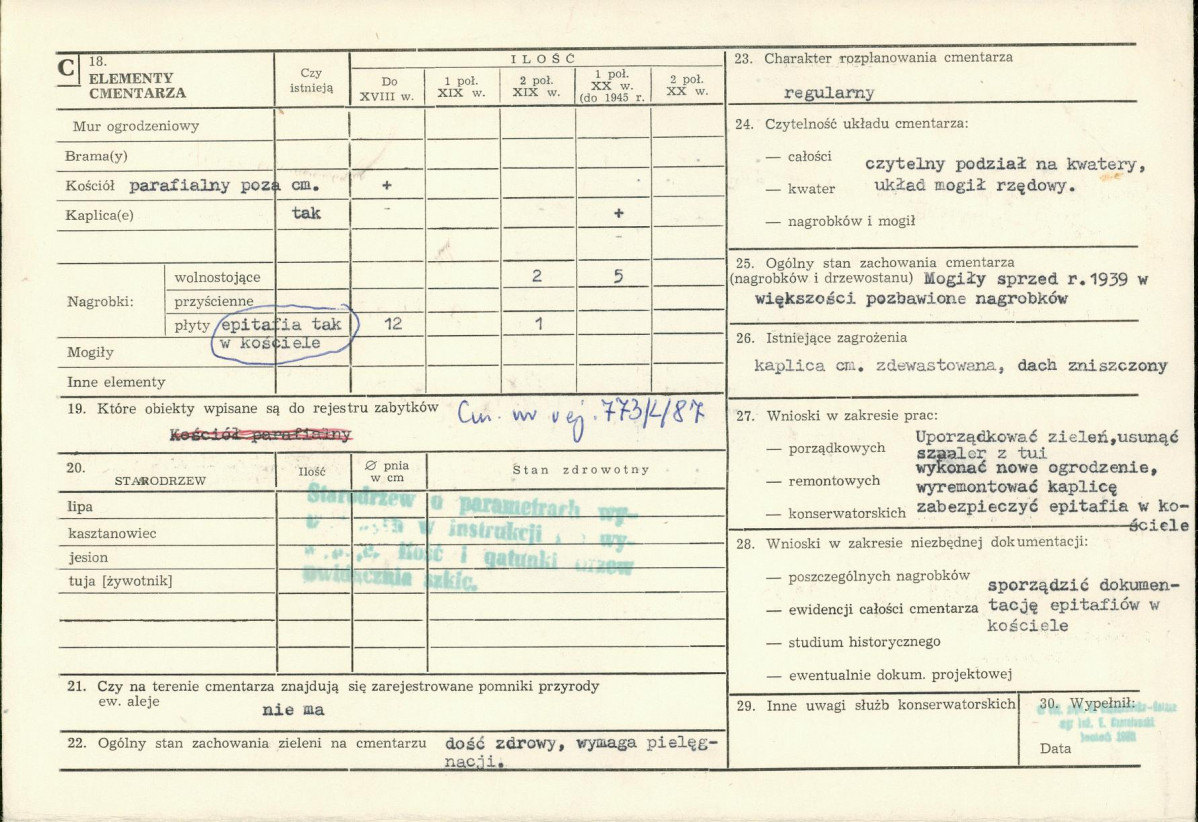 C 18. ELEMENTY CMENTARZA
Czy istnieją
ILOŚĆ
Do XVIII w.
1 poł. XIX w.
2 poł. XIX w.
1 poł. XX w. (do 1945 r.
2 poł. XX w.
Mur ogrodzeniowy
Brama(y)
Kościół parafialny poza cm. +
Kaplica(e) tak - +
Nagrobki:
wolnostojące 2 5
przyścienne
płyty epitafia tak 12 1
w kościele
Mogiły
Inne elementy
19. Które obiekty wpisane są do rejestru zabytków Cm. nr rej. 773/L/87
Kościół parafialny
20. STARODRZEW
Ilość
Ø pnia w cm
Stan zdrowotny
Starodrzew o parametrach wy-
w instrukcji wy-
ilość i gatunki drzew
uwidacznia szkic.
lipa
kasztanowiec
jesion
tuja [żywotnik]
21. Czy na terenie cmentarza znajdują się zarejestrowane pomniki przyrody
ew. aleje
nie ma
22. Ogólny stan zachowania zieleni na cmentarzu dość zdrowy, wymaga pielęg-
nacji.
23. Charakter rozplanowania cmentarza
regularny
24. Czytelność układu cmentarza:
— całości czytelny podział na kwatery,
— kwater układ mogił rzędowy.
— nagrobków i mogił
25. Ogólny stan zachowania cmentarza
(nagrobków i drzewostanu) Mogiły sprzed r.1939 w
większości pozbawione nagrobków
26. Istniejące zagrożenia
kaplica cm. zdewastowana, dach zniszczony
27. Wnioski w zakresie prac:
Uporządkować zieleń,usunąć
— porządkowych szpaler z tui
wykonać nowe ogrodzenie,
— remontowych wyremontować kaplicę
— konserwatorskich zabezpieczyć epitafia w ko-
ściele
28. Wnioski w zakresie niezbędnej dokumentacji:
— poszczególnych nagrobków sporządzić dokumen-
— ewidencji całości cmentarza tację epitafiów w
kościele
— studium historycznego
— ewentualnie dokum. projektowej
29. Inne uwagi służb konserwatorskich
30. Wypełnił:
Data